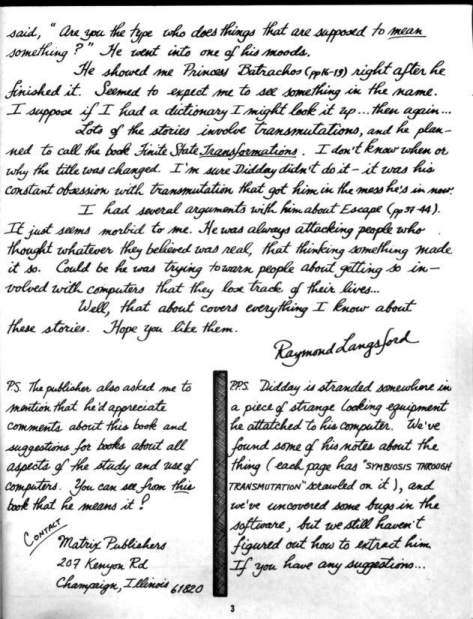 said, "Are you the type who does things that are supposed to mean
something?" He went into one of his moods.
He showed me Princess Batrachos (pp16-19) right after he
finished it. Seemed to expect me to see something in the name.
I suppose if I had a dictionary I might look it up...then again...
Lots of the stories involve transmutations, and he plan-
ned to call the book Finite State Transformations. I don't know when or
why the title was changed. I'm sure Didday didn't do it - it was his
constant obsession with transmutation that got him in the mess he's in now.
I had several arguments with him about Escape (pp37-44).
It just seems morbid to me. He was always attacking people who
thought whatever they believed was real, that thinking something made
it so. Could be he was trying to warn people about getting so in-
volved with computers that they lose track of their lives...
Well, that about covers everything I know about
these stories. Hope you like them.
Raymond Langsford
PS. The publisher also asked me to
mention that he'd appreciate
comments about this book and
suggestions for books about all
aspects of the study and use of
computers. You can see from this
book that he means it!
CONTACT
Matrix Publishers
207 Kenyon Rd
Champaign, Illinois 61820
PPS. Didday is stranded somewhere in
a piece of strange looking equipment
he attatched to his computer. We've
found some of his notes about the
thing (each page has "SYMBIOSIS THROUGH
TRANSMUTATION" scrawled on it), and
we've uncovered some bugs in the
software, but we still haven't
figured out how to extract him.
If you have any suggestions...
3